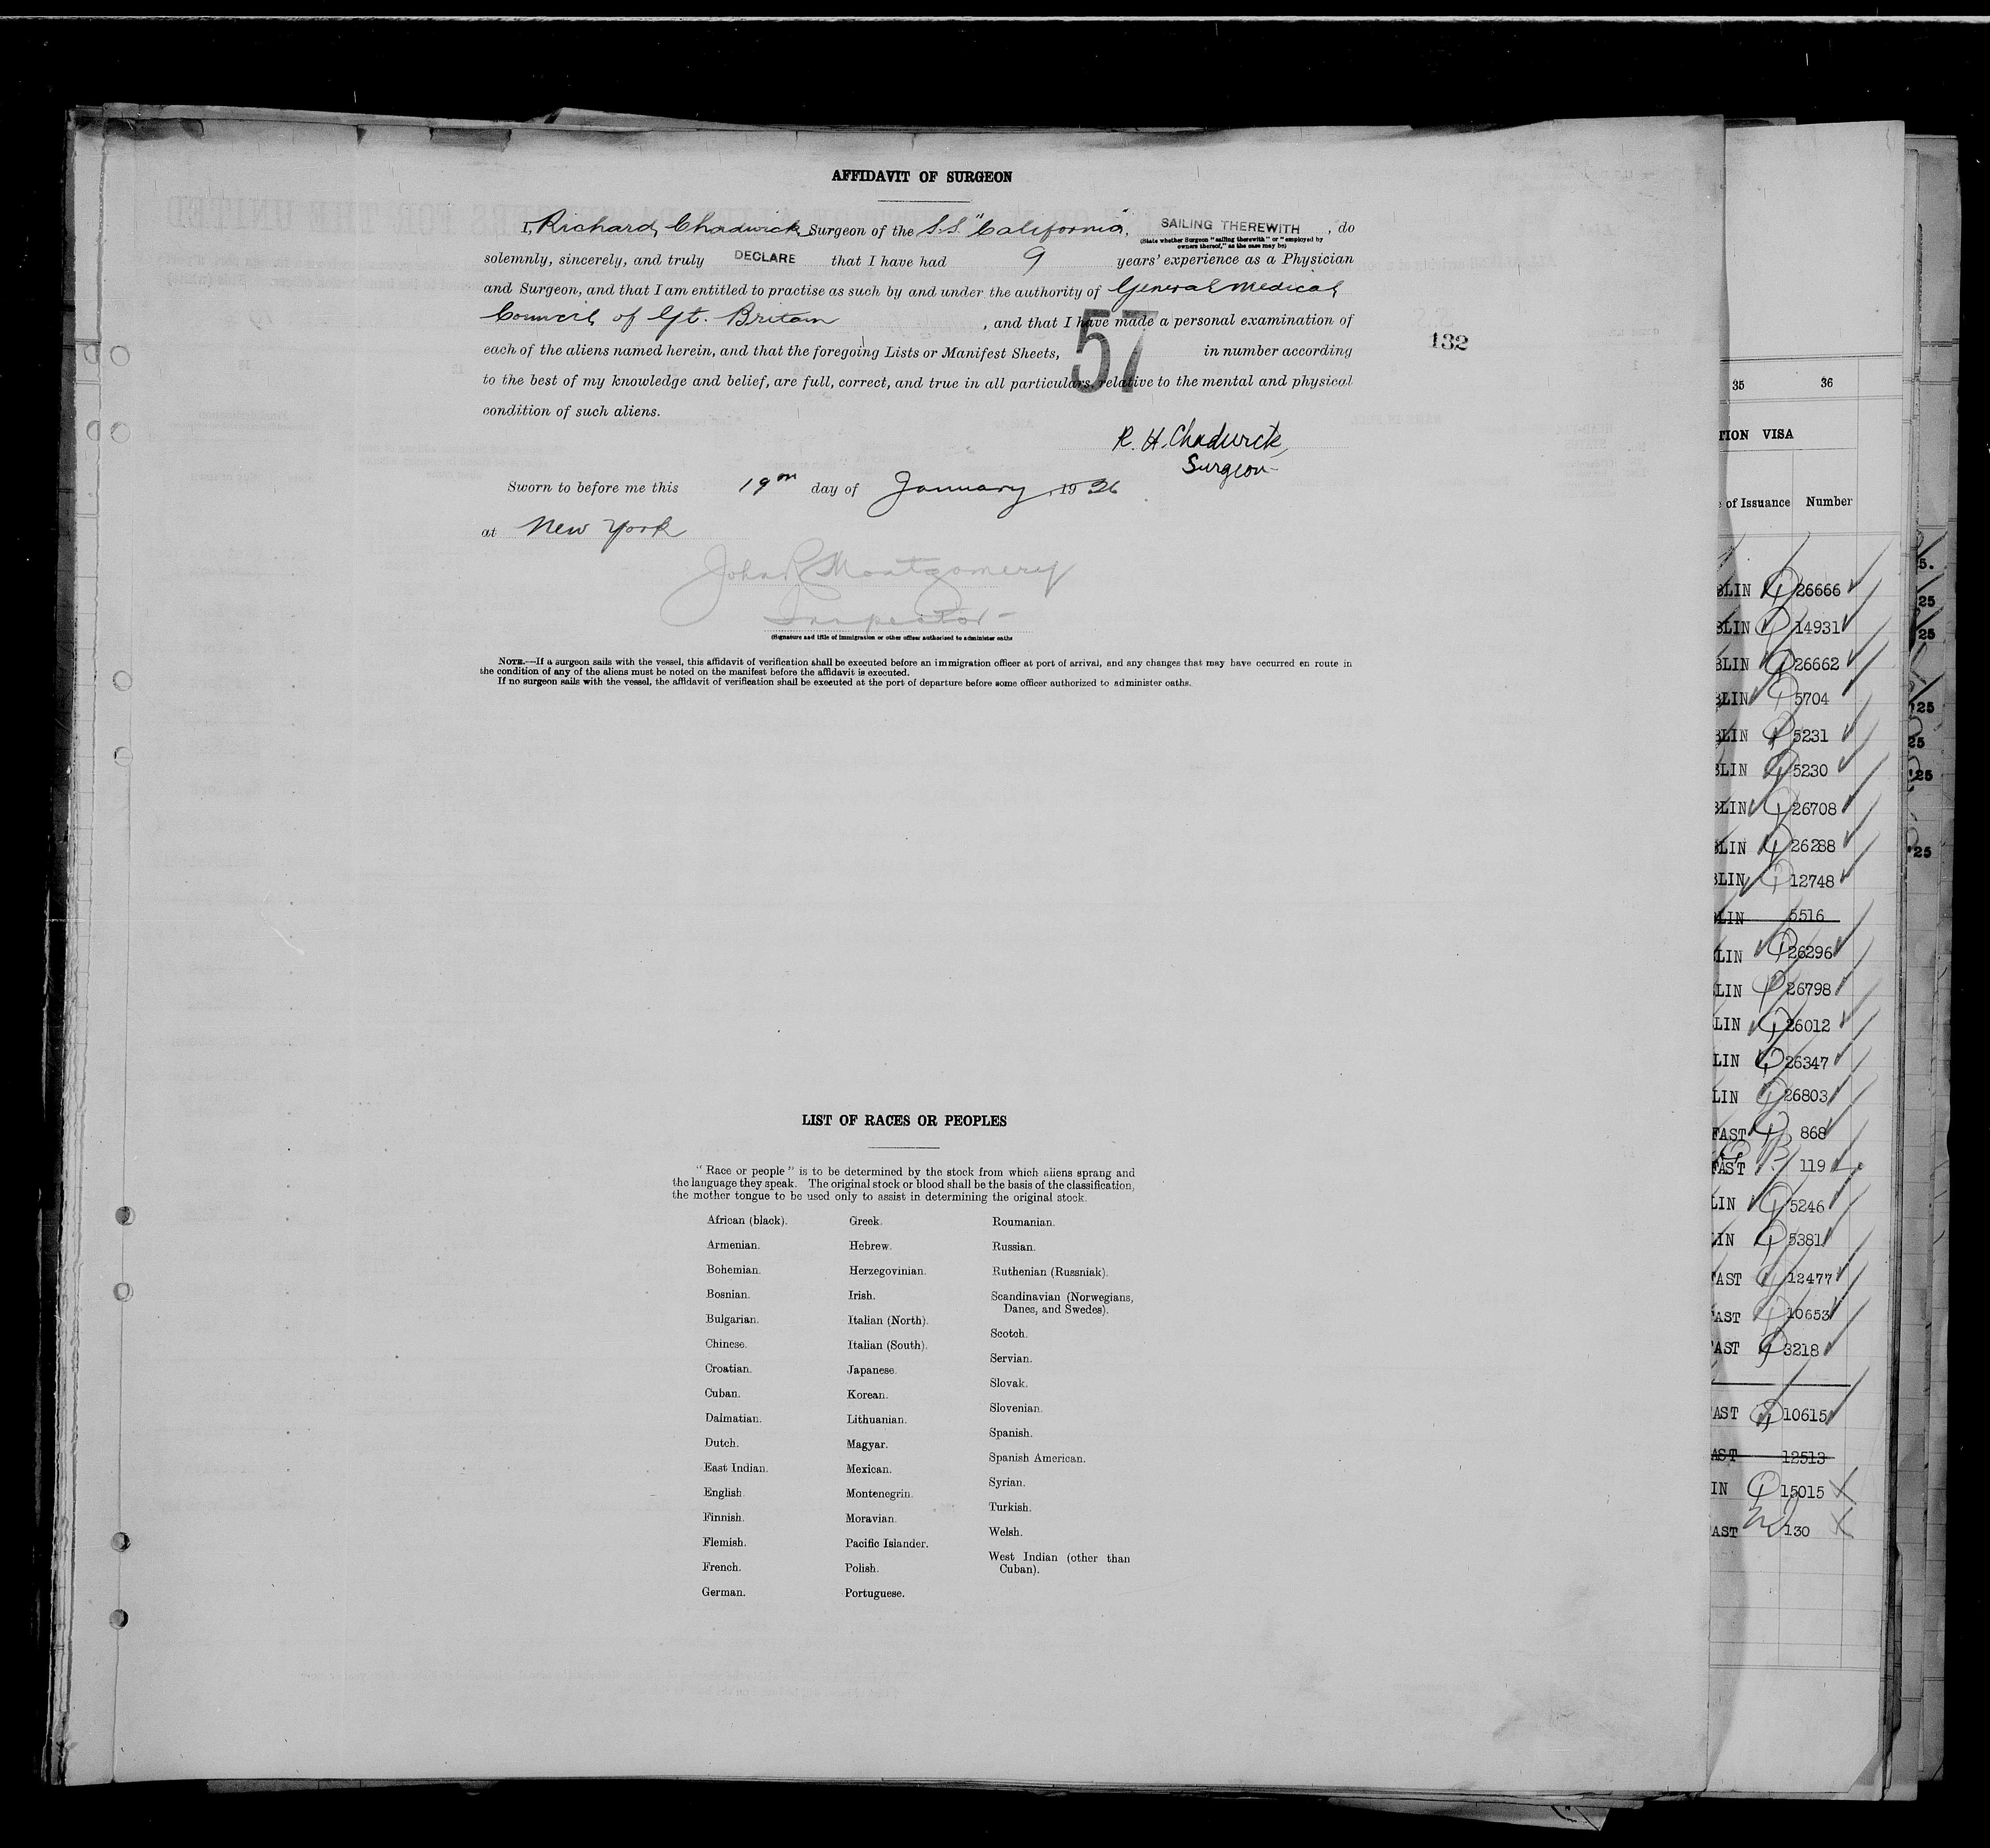 AFFIDAVIT OF SURGEON
I, Richard Chadwick Surgeon of the S.S. "California", SAILING THEREWITH, do
(State whether Surgeon "sailing therewith" or "employed by
owners thereof," as the case may be)
solemnly, sincerely, and truly DECLARE that I have had 9 years' experience as a Physician
and Surgeon, and that I am entitled to practise as such by and under the authority of General Medical
Council of Gt. Britain, and that I have made a personal examination of
each of the aliens named herein, and that the foregoing Lists or Manifest Sheets, 57 in number according
132
to the best of my knowledge and belief, are full, correct, and true in all particulars, relative to the mental and physical
condition of such aliens.
R. H. Chadwick
Surgeon
Sworn to before me this 19th day of January, 1926
at New York
John R Montgomery
Inspector
(Signature and title of immigration or other officer authorized to administer oaths
NOTE.—If a surgeon sails with the vessel, this affidavit of verification shall be executed before an immigration officer at port of arrival, and any changes that may have occurred en route in
the condition of any of the aliens must be noted on the manifest before the affidavit is executed.
If no surgeon sails with the vessel, the affidavit of verification shall be executed at the port of departure before some officer authorized to administer oaths.
LIST OF RACES OR PEOPLES
"Race or people" is to be determined by the stock from which aliens sprang and
the language they speak. The original stock or blood shall be the basis of the classification,
the mother tongue to be used only to assist in determining the original stock.
African (black).
Armenian.
Bohemian.
Bosnian.
Bulgarian.
Chinese.
Croatian.
Cuban.
Dalmatian.
Dutch.
East Indian.
English.
Finnish.
Flemish.
French.
German.
Greek.
Hebrew.
Herzegovinian.
Irish.
Italian (North).
Italian (South).
Japanese.
Korean.
Lithuanian.
Magyar.
Mexican.
Montenegrin.
Moravian.
Pacific Islander.
Polish.
Portuguese.
Roumanian.
Russian.
Ruthenian (Russniak).
Scandinavian (Norwegians,
Danes, and Swedes).
Scotch.
Servian.
Slovak.
Slovenian.
Spanish.
Spanish American.
Syrian.
Turkish.
Welsh.
West Indian (other than
Cuban).
35 36
TION VISA
of Issuance Number
BLIN 26666
BLIN 14931
BLIN 26662
BLIN 5704
BLIN 5231
BLIN 5230
BLIN 26708
BLIN 26288
BLIN 12748
LIN 5516
LIN 26296
LIN 26798
LIN 26012
LIN 26347
LIN 26803
FAST 868
FAST 119
LIN 5246
IN 5381
AST 12477
AST 10653
AST 3218
AST 10615
AST 12513
IN 15015
AST 130
5.
25
25
25
25
'25
'25